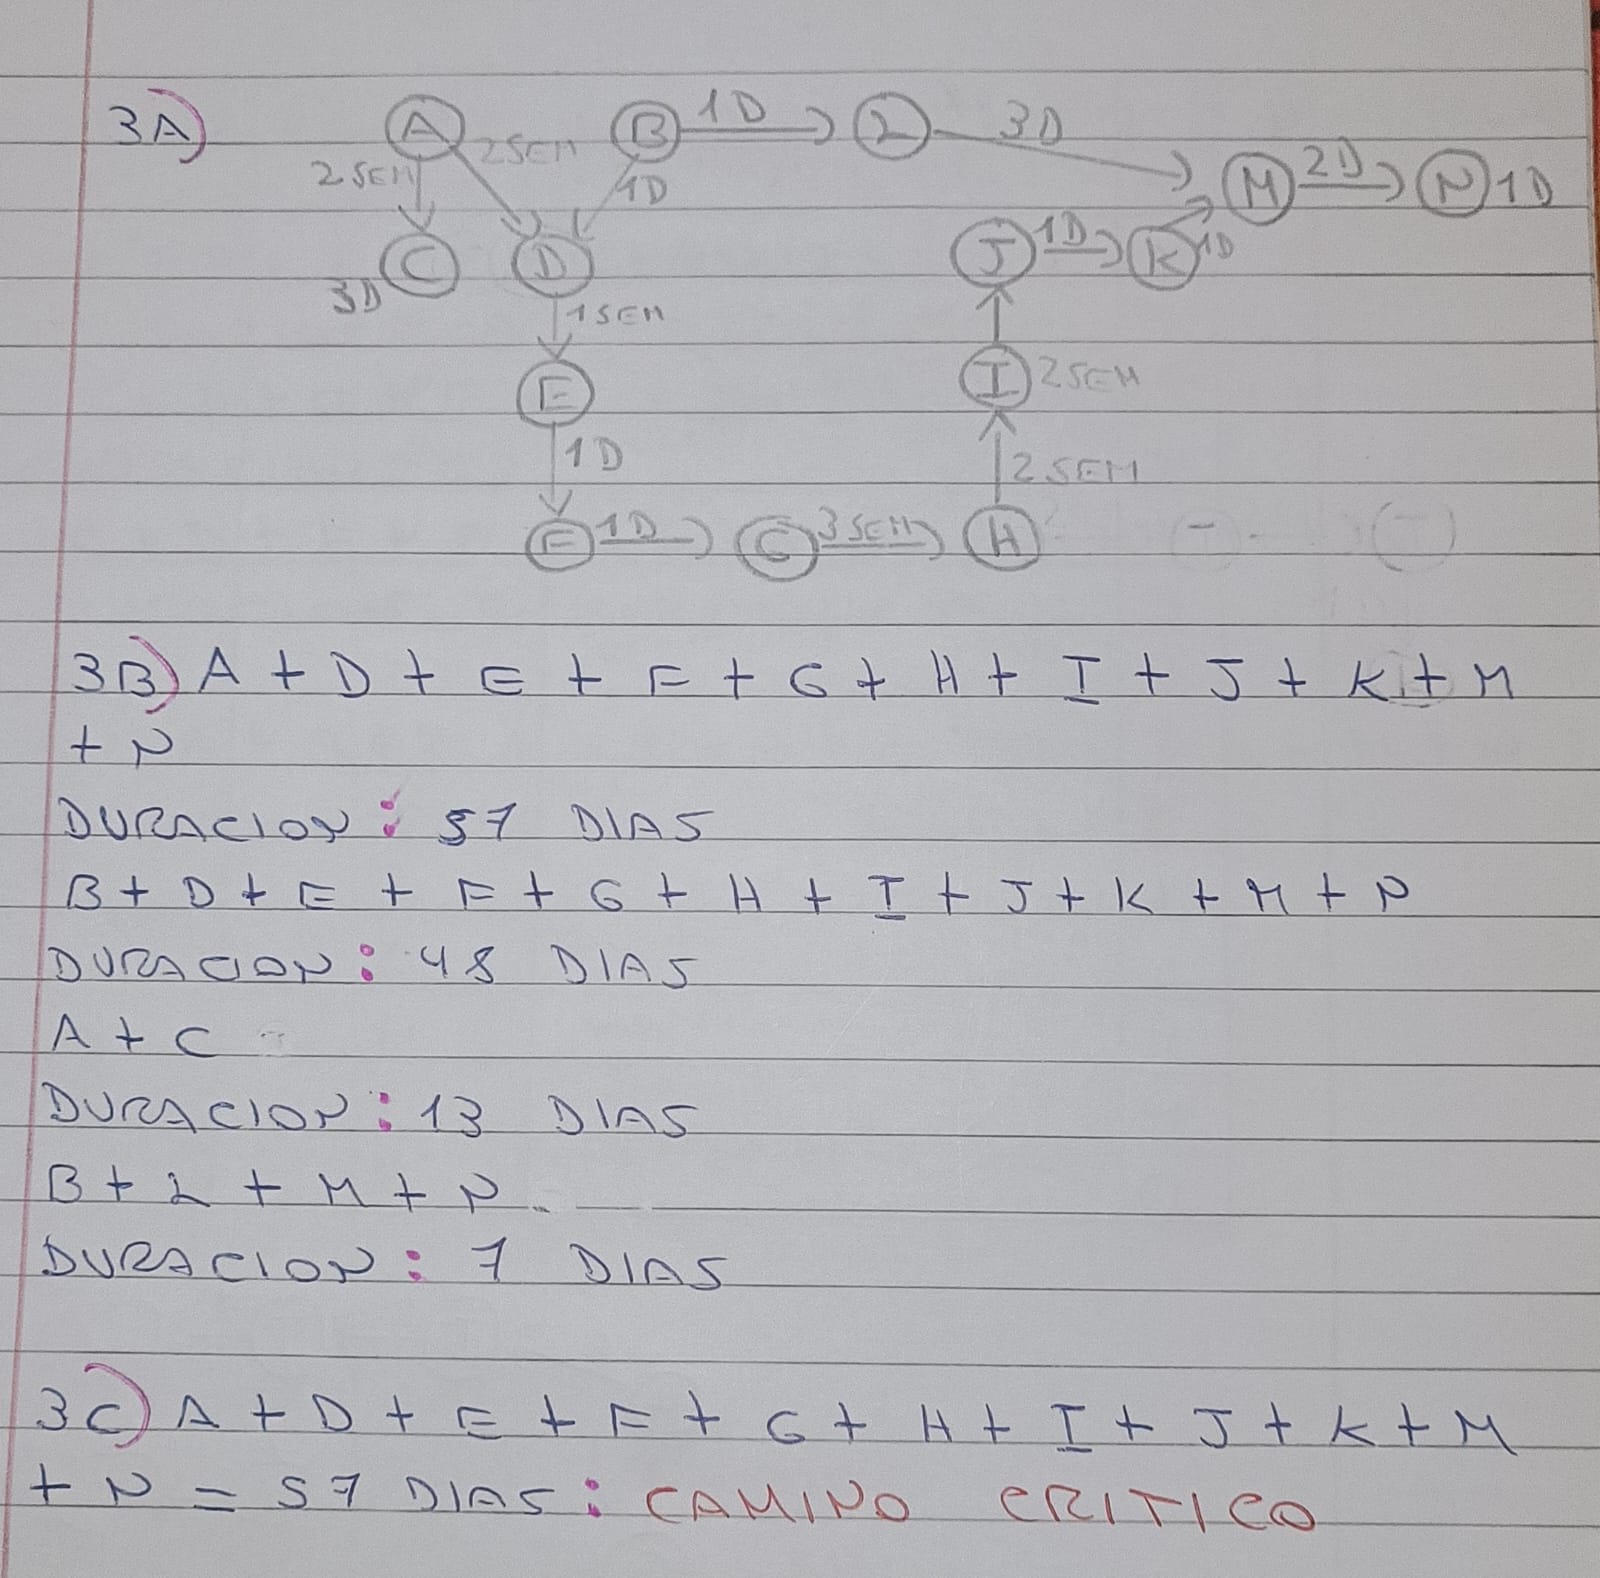 3A) A B 1D L 3D
2SEM 2SEM 1D M 2D N 1D
C D J 1D K 1D
3D 1SEM
E I 2SEM
1D 2SEM
F 1D G 3SEM H
3B) A + D + E + F + G + H + I + J + K + M
+ N
DURACION: 57 DIAS
B + D + E + F + G + H + I + J + K + M + N
DURACION: 48 DIAS
A + C
DURACION: 13 DIAS
B + L + M + N
DURACION: 7 DIAS
3C) A + D + E + F + G + H + I + J + K + M
+ N = 57 DIAS: CAMINO CRITICO